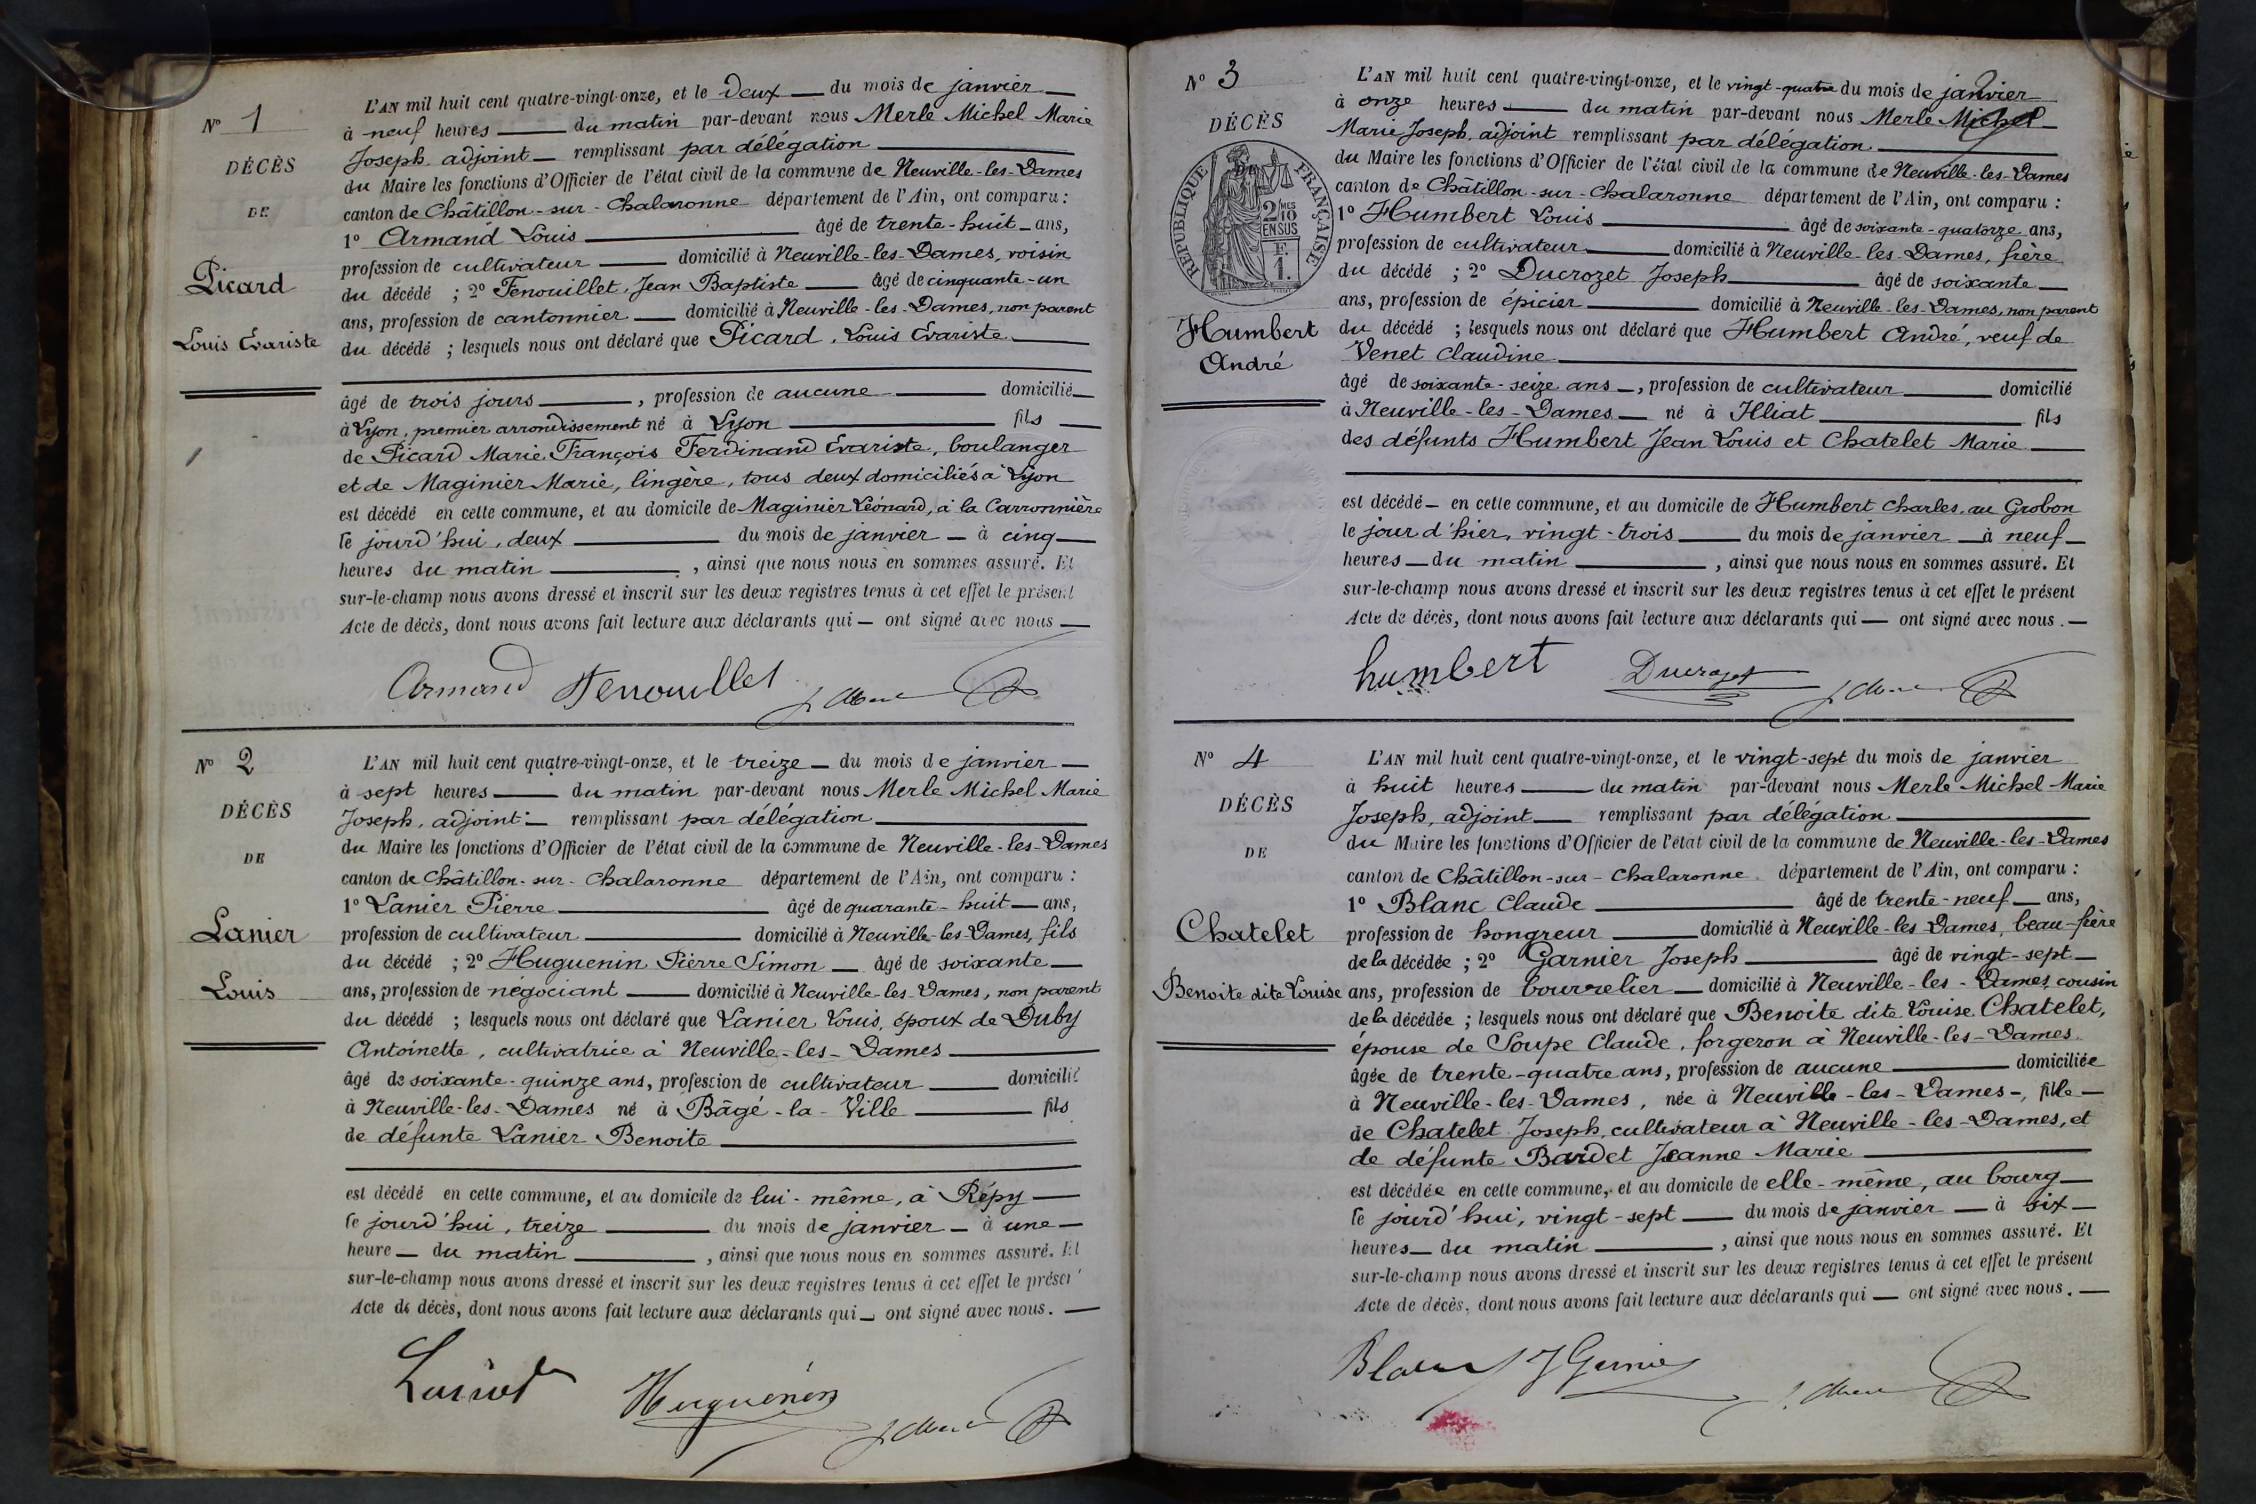 N° 1
DÉCÈS
DE
Picard
Louis Evariste
L'AN mil huit cent quatre-vingt-onze, et le deux du mois de janvier
à neuf heures du matin par-devant nous Merle Michel Marie
Joseph, adjoint remplissant par délégation
du Maire les fonctions d'Officier de l'état civil de la commune de Neuville-les-Dames
canton de Châtillon-sur-Chalaronne département de l'Ain, ont comparu :
1° Armand Louis âgé de trente-huit ans,
profession de cultivateur domicilié à Neuville-les-Dames, voisin
du décédé ; 2° Fenouillet, Jean Baptiste âgé de cinquante-un
ans, profession de cantonnier domicilié à Neuville-les-Dames, non parent
du décédé ; lesquels nous ont déclaré que Picard, Louis Evariste
âgé de trois jours, profession de aucune domicilié
à Lyon, premier arrondissement né à Lyon fils
de Picard Marie François Ferdinand Evariste, boulanger
et de Maginier Marie, lingère, tous deux domiciliés à Lyon
est décédé en cette commune, et au domicile de Maginier Léonard, à la Carronnière
le jourd'hui, deux du mois de janvier à cinq
heures du matin, ainsi que nous nous en sommes assuré. Et
sur-le-champ nous avons dressé et inscrit sur les deux registres tenus à cet effet le présent
Acte de décès, dont nous avons fait lecture aux déclarants qui ont signé avec nous
Armand Fenouillet
N° 2
DÉCÈS
DE
Lanier
Louis
L'AN mil huit cent quatre-vingt-onze, et le treize du mois de janvier
à sept heures du matin par-devant nous Merle Michel Marie
Joseph, adjoint remplissant par délégation
du Maire les fonctions d'Officier de l'état civil de la commune de Neuville-les-Dames
canton de Châtillon-sur-Chalaronne département de l'Ain, ont comparu :
1° Lanier Pierre âgé de quarante-huit ans,
profession de cultivateur domicilié à Neuville-les-Dames, fils
du décédé ; 2° Huguenin Pierre Simon âgé de soixante
ans, profession de négociant domicilié à Neuville-les-Dames, non parent
du décédé ; lesquels nous ont déclaré que Lanier Louis, époux de Duby
Antoinette, cultivatrice à Neuville-les-Dames
âgé de soixante-quinze ans, profession de cultivateur domicilié
à Neuville-les-Dames né à Bâgé-la-Ville fils
de défunte Lanier Benoite
est décédé en cette commune, et au domicile de lui-même, à Répy
le jourd'hui, treize du mois de janvier à une
heure du matin, ainsi que nous nous en sommes assuré. Et
sur-le-champ nous avons dressé et inscrit sur les deux registres tenus à cet effet le présen
Acte de décès, dont nous avons fait lecture aux déclarants qui ont signé avec nous.
Huguenin
N° 3
DÉCÈS
DE
RÉPUBLIQUE FRANÇAISE
2/10MES
EN SUS
F.
1.
Humbert
André
L'AN mil huit cent quatre-vingt-onze, et le vingt-quatre du mois de janvier
à onze heures du matin par-devant nous Merle Michel
Marie Joseph, adjoint remplissant par délégation
du Maire les fonctions d'Officier de l'état civil de la commune de Neuville-les-Dames
canton de Châtillon-sur-Chalaronne département de l'Ain, ont comparu :
1° Humbert Louis âgé de soixante-quatorze ans,
profession de cultivateur domicilié à Neuville-les-Dames, frère
du décédé ; 2° Ducrozet Joseph âgé de soixante
ans, profession de épicier domicilié à Neuville-les-Dames, non parent
du décédé ; lesquels nous ont déclaré que Humbert André, veuf de
Venet Claudine
âgé de soixante-seize ans, profession de cultivateur domicilié
à Neuville-les-Dames né à Illiat fils
des défunts Humbert Jean Louis et Chatelet Marie
est décédé en cette commune, et au domicile de Humbert Charles, au Grobon
le jour d'hier, vingt-trois du mois de janvier à neuf
heures du matin, ainsi que nous nous en sommes assuré. Et
sur-le-champ nous avons dressé et inscrit sur les deux registres tenus à cet effet le présent
Acte de décès, dont nous avons fait lecture aux déclarants qui ont signé avec nous.
humbert Ducrozet
N° 4
DÉCÈS
DE
Chatelet
Benoite dite Louise
L'AN mil huit cent quatre-vingt-onze, et le vingt-sept du mois de janvier
à huit heures du matin par-devant nous Merle Michel Marie
Joseph, adjoint remplissant par délégation
du Maire les fonctions d'Officier de l'état civil de la commune de Neuville-les-Dames
canton de Châtillon-sur-Chalaronne département de l'Ain, ont comparu :
1° Blanc Claude âgé de trente-neuf ans,
profession de hongreur domicilié à Neuville-les Dames, beau-frère
de la décédée ; 2° Garnier Joseph âgé de vingt-sept
ans, profession de bourrelier domicilié à Neuville-les-Dames, cousin
de la décédée ; lesquels nous ont déclaré que Benoite dite Louise Chatelet,
épouse de Soupe Claude, forgeron à Neuville-les-Dames
âgée de trente-quatre ans, profession de aucune domiciliée
à Neuville-les-Dames, née à Neuville-les-Dames, fille
de Chatelet Joseph, cultivateur à Neuville-les-Dames, et
de défunte Bardet Jeanne Marie
est décédée en cette commune, et au domicile de elle-même, au bourg
le jourd'hui, vingt-sept du mois de janvier à six
heures du matin, ainsi que nous nous en sommes assuré. Et
sur-le-champ nous avons dressé et inscrit sur les deux registres tenus à cet effet le présent
Acte de décès, dont nous avons fait lecture aux déclarants qui ont signé avec nous.
Blanc